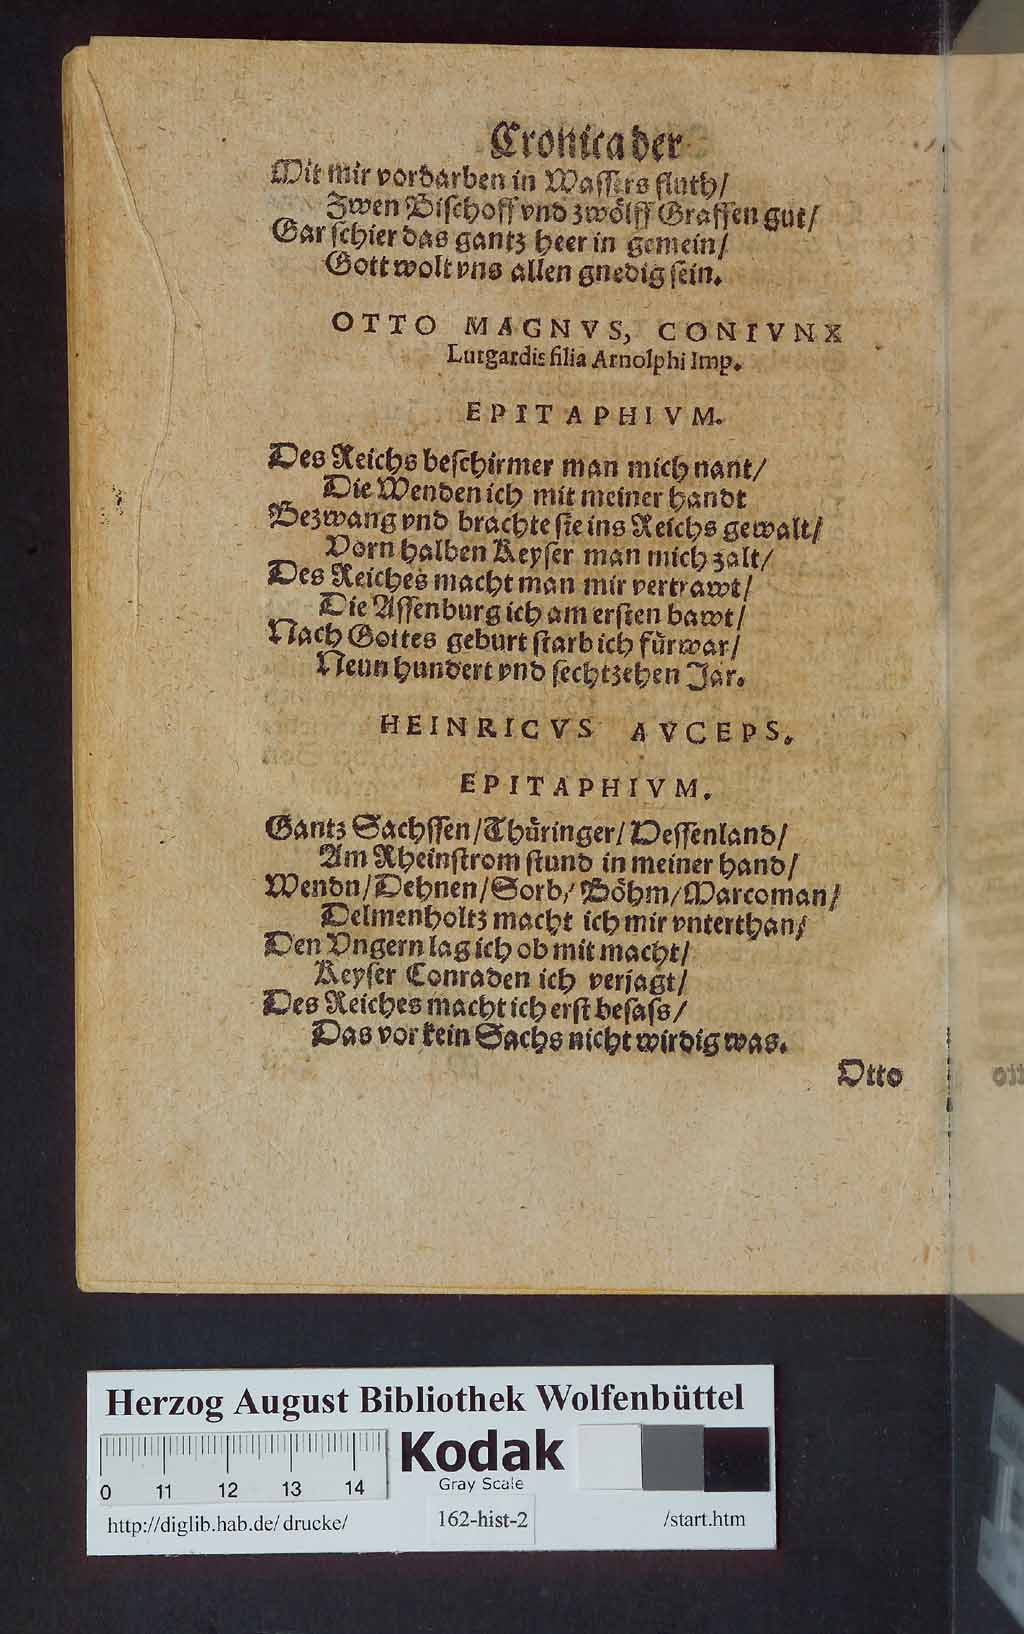 Cronica der
Mit mir vordarben in Wassers fluth/
Zwen Bischoff vnd zwölff Graffen gut/
Gar schier das gantz heer in gemein/
Gott wolt vns allen gnedig sein.
OTTO MAGNVS, CONIVNX
Lutgardis filia Arnolphi Imp.
EPITAPHIVM.
Des Reichs beschirmer man mich nant/
Die Wenden ich mit meiner handt
Bezwang vnd brachte sie ins Reichs gewalt/
Vorn halben Keyser man mich zalt/
Des Reiches macht man mir vertrawt/
Die Assenburg ich am ersten bawt/
Nach Gottes geburt starb ich fürwar/
Neun hundert vnd sechtzehen Jar.
HEINRICVS AVCEPS.
EPITAPHIVM.
Gantz Sachssen/Thüringer/Hessenland/
Am Rheinstrom stund in meiner hand/
Wendn/Dehnen/Sorb/Böhm/Marcoman/
Delmenholtz macht ich mir vnterthan/
Den Vngern lag ich ob mit macht/
Keyser Conraden ich verjagt/
Des Reiches macht ich erst besass/
Das vor kein Sachs nicht wirdig was.
Otto
Herzog August Bibliothek Wolfenbüttel
Kodak
Gray Scale
0 11 12 13 14
http://diglib.hab.de/drucke/ 162-hist-2 /start.htm